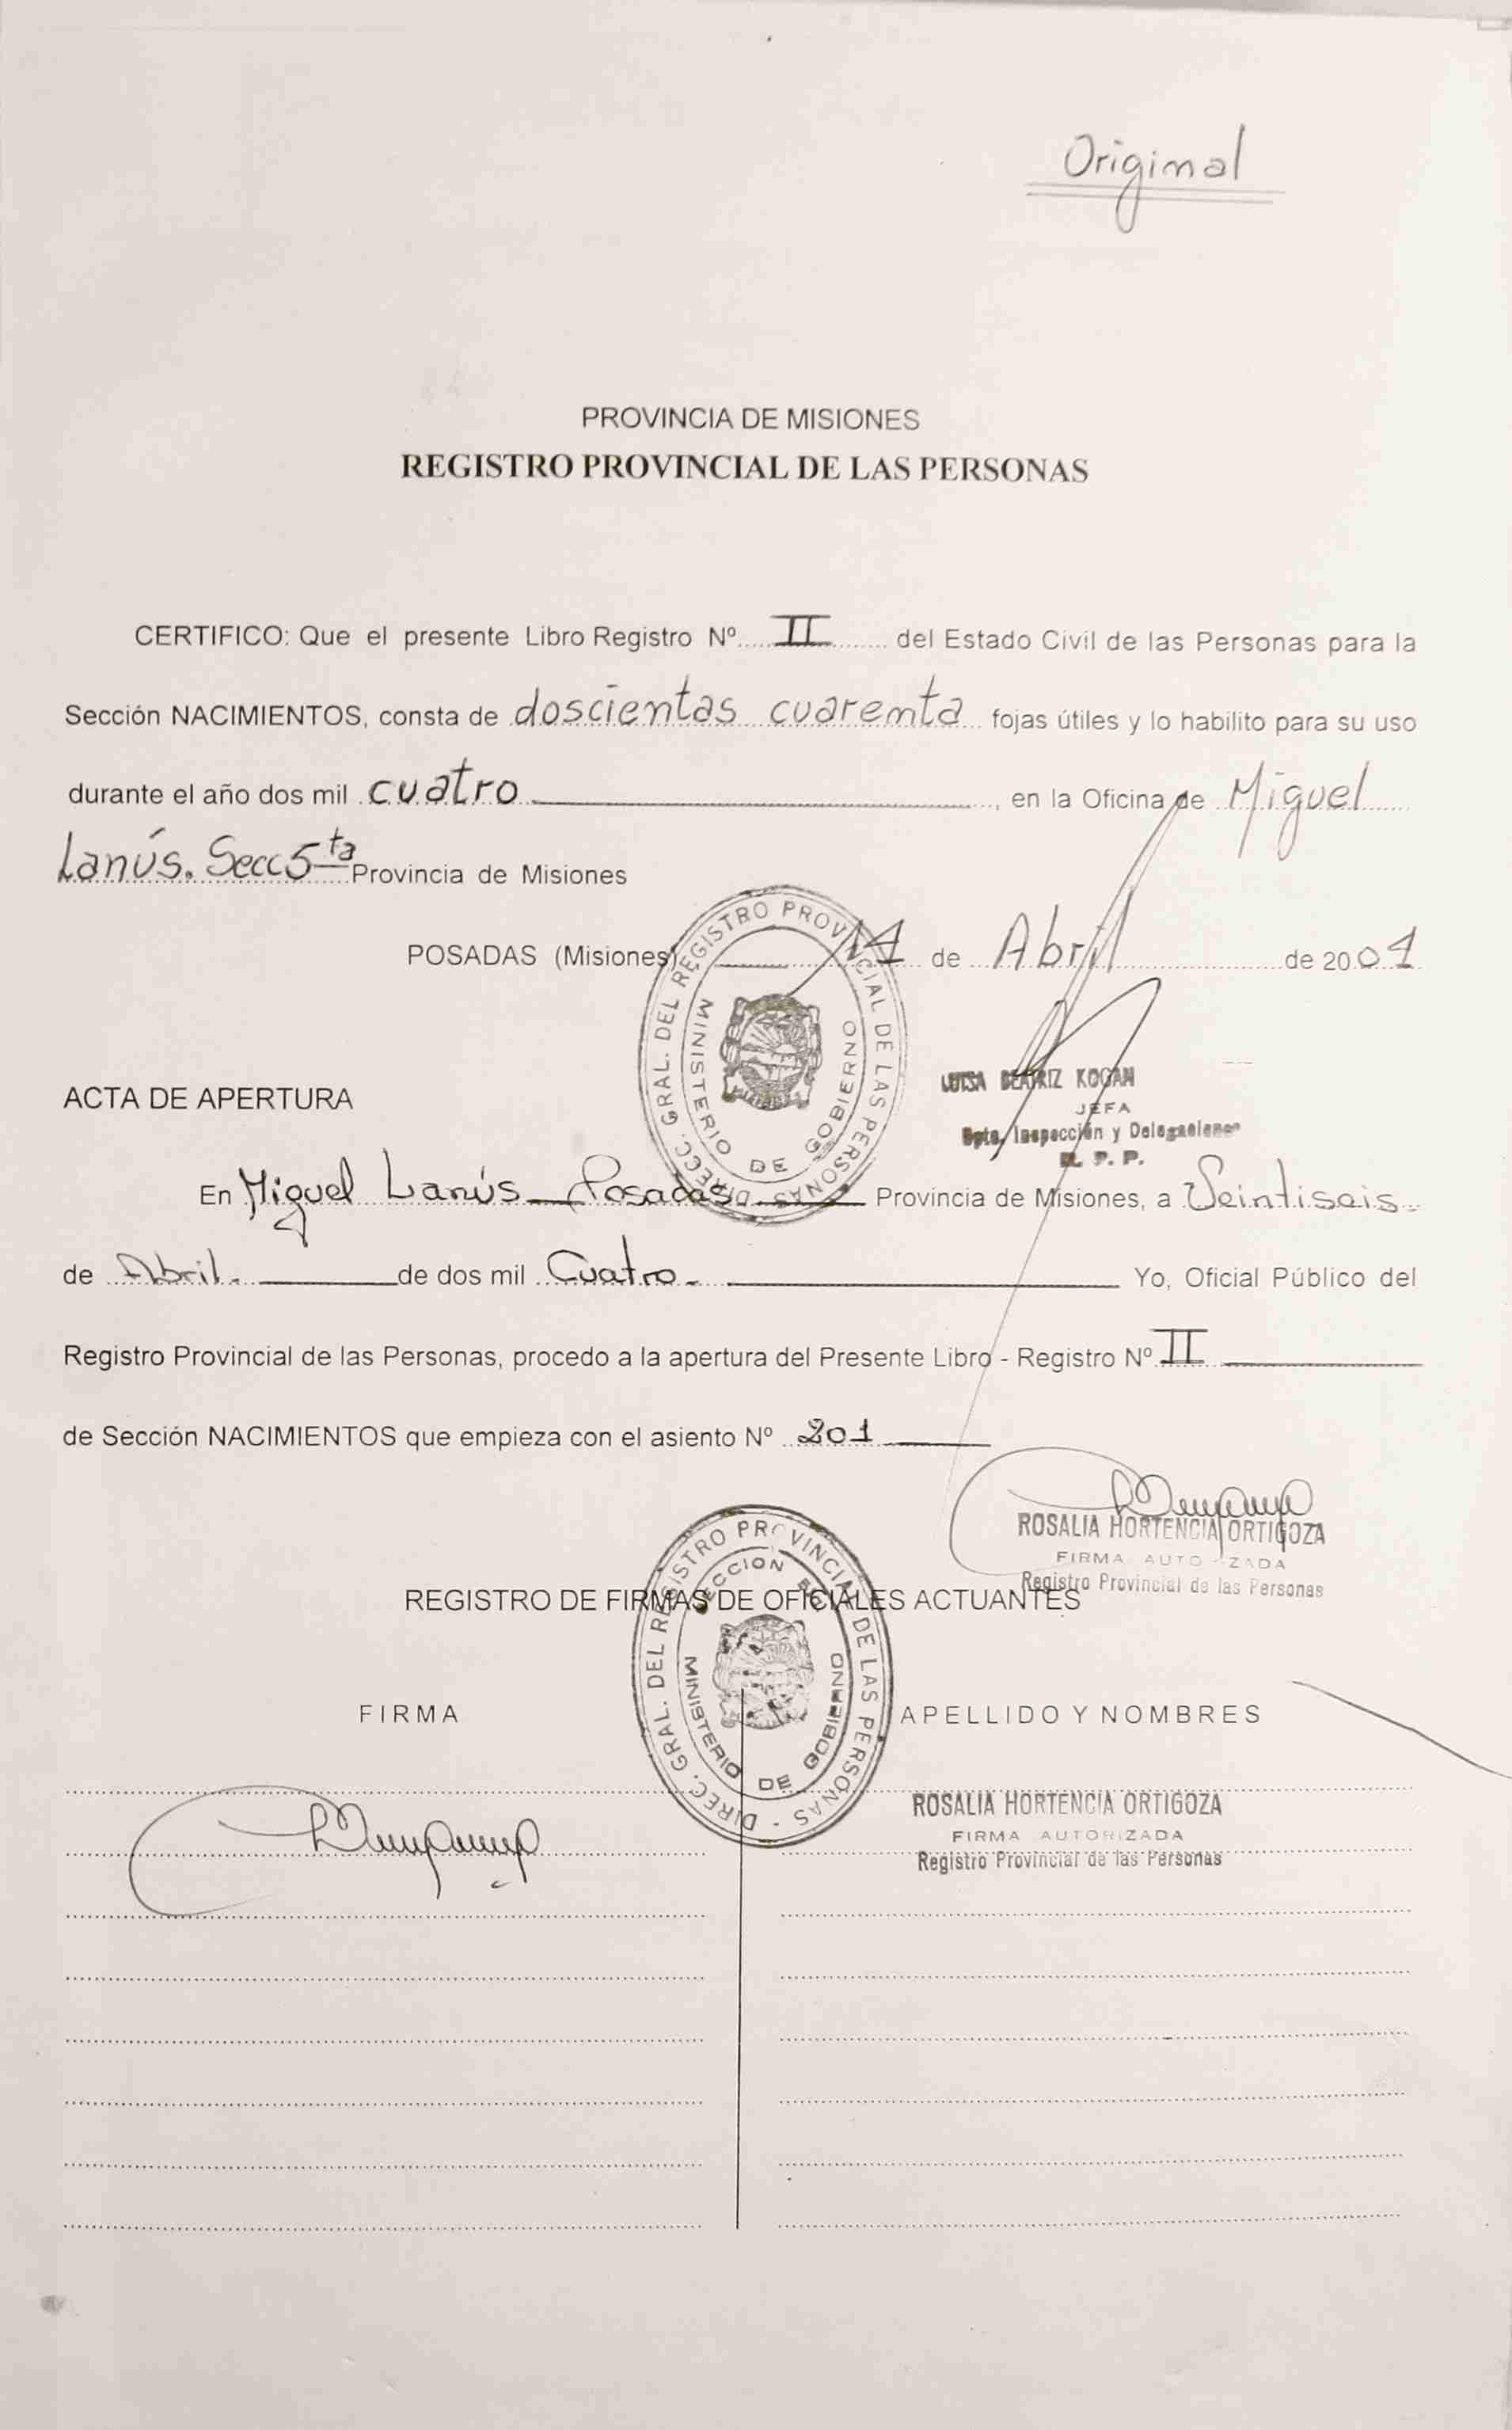 Original
PROVINCIA DE MISIONES
REGISTRO PROVINCIAL DE LAS PERSONAS
CERTIFICO: Que el presente Libro Registro Nº II del Estado Civil de las Personas para la
Sección NACIMIENTOS, consta de doscientas cuarenta fojas útiles y lo habilito para su uso
durante el año dos mil cuatro, en la Oficina de Miguel
Lanús. Secc 5ta Provincia de Misiones
POSADAS (Misiones) 14 de Abril de 2004
DIRECC. GRAL. DEL REGISTRO PROVINCIAL DE LAS PERSONAS
MINISTERIO DE GOBIERNO
LUISA BEATRIZ KOGAN
JEFA
Dpto. Inspección y Delegaciones
R. P. P.
ACTA DE APERTURA
En Miguel Lanús - Posadas Provincia de Misiones, a Veintiseis
de Abril. de dos mil Cuatro Yo, Oficial Público del
Registro Provincial de las Personas, procedo a la apertura del Presente Libro - Registro Nº II
de Sección NACIMIENTOS que empieza con el asiento Nº 201
ROSALIA HORTENCIA ORTIGOZA
FIRMA AUTORIZADA
Registro Provincial de las Personas
DIREC. GRAL. DEL REGISTRO PROVINCIAL DE LAS PERSONAS -
SECCION
MINISTERIO DE GOBIERNO
REGISTRO DE FIRMAS DE OFICIALES ACTUANTES
FIRMA APELLIDO Y NOMBRES
ROSALIA HORTENCIA ORTIGOZA
FIRMA AUTORIZADA
Registro Provincial de las Personas